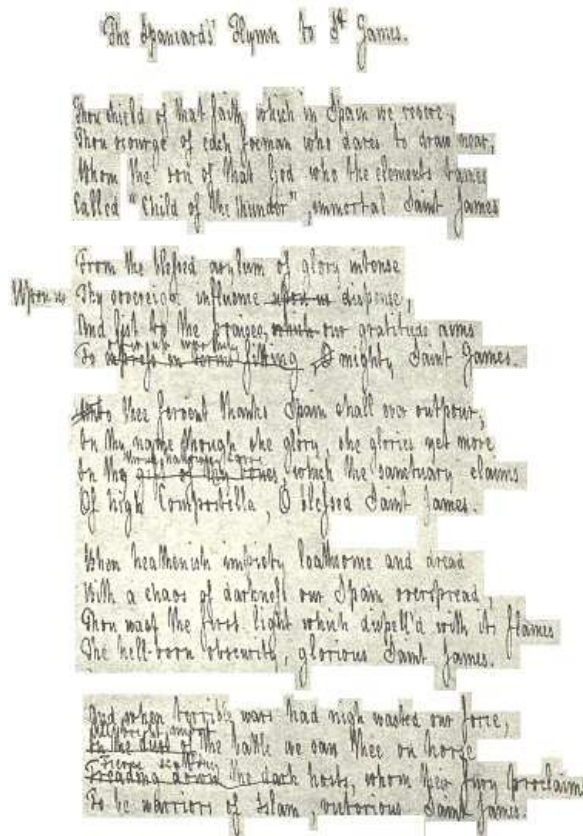 The Spaniards' Hymn to St James.
Thou shield of that faith which in Spain we revere,
Thou scourge of each foeman who dares to draw near,
Whom the Son of that God who the elements tames
Called "Child of the thunder", immortal Saint James
From the blessed asylum of glory intense
Upon us Thy sovereign influence upon us dispense,
And list to the praises, which our gratitude aims
To offer up worthily
express in terms fitting, O mighty Saint James.
Unto thee fervent thanks Spain shall ever outpour,
In thy name though she glory, she glories yet more
thrice hallowed corse
In the gift of thy bones, which the sanctuary claims
Of high Compostella, O blessed Saint James.
When heathenish impiety loathsome and dread
With a chaos of darkness our Spain overspread,
Thou wast the first light which dispell'd with its flames
The hell-born obscurity, glorious Saint James.
And when terrible wars had nigh wasted our force,
All bright midst
In the dust of the battle we saw thee on horse
Fierce scattering
Treading down the dark hosts, whom their fury proclaims
To be warriors of Islam, victorious Saint James.